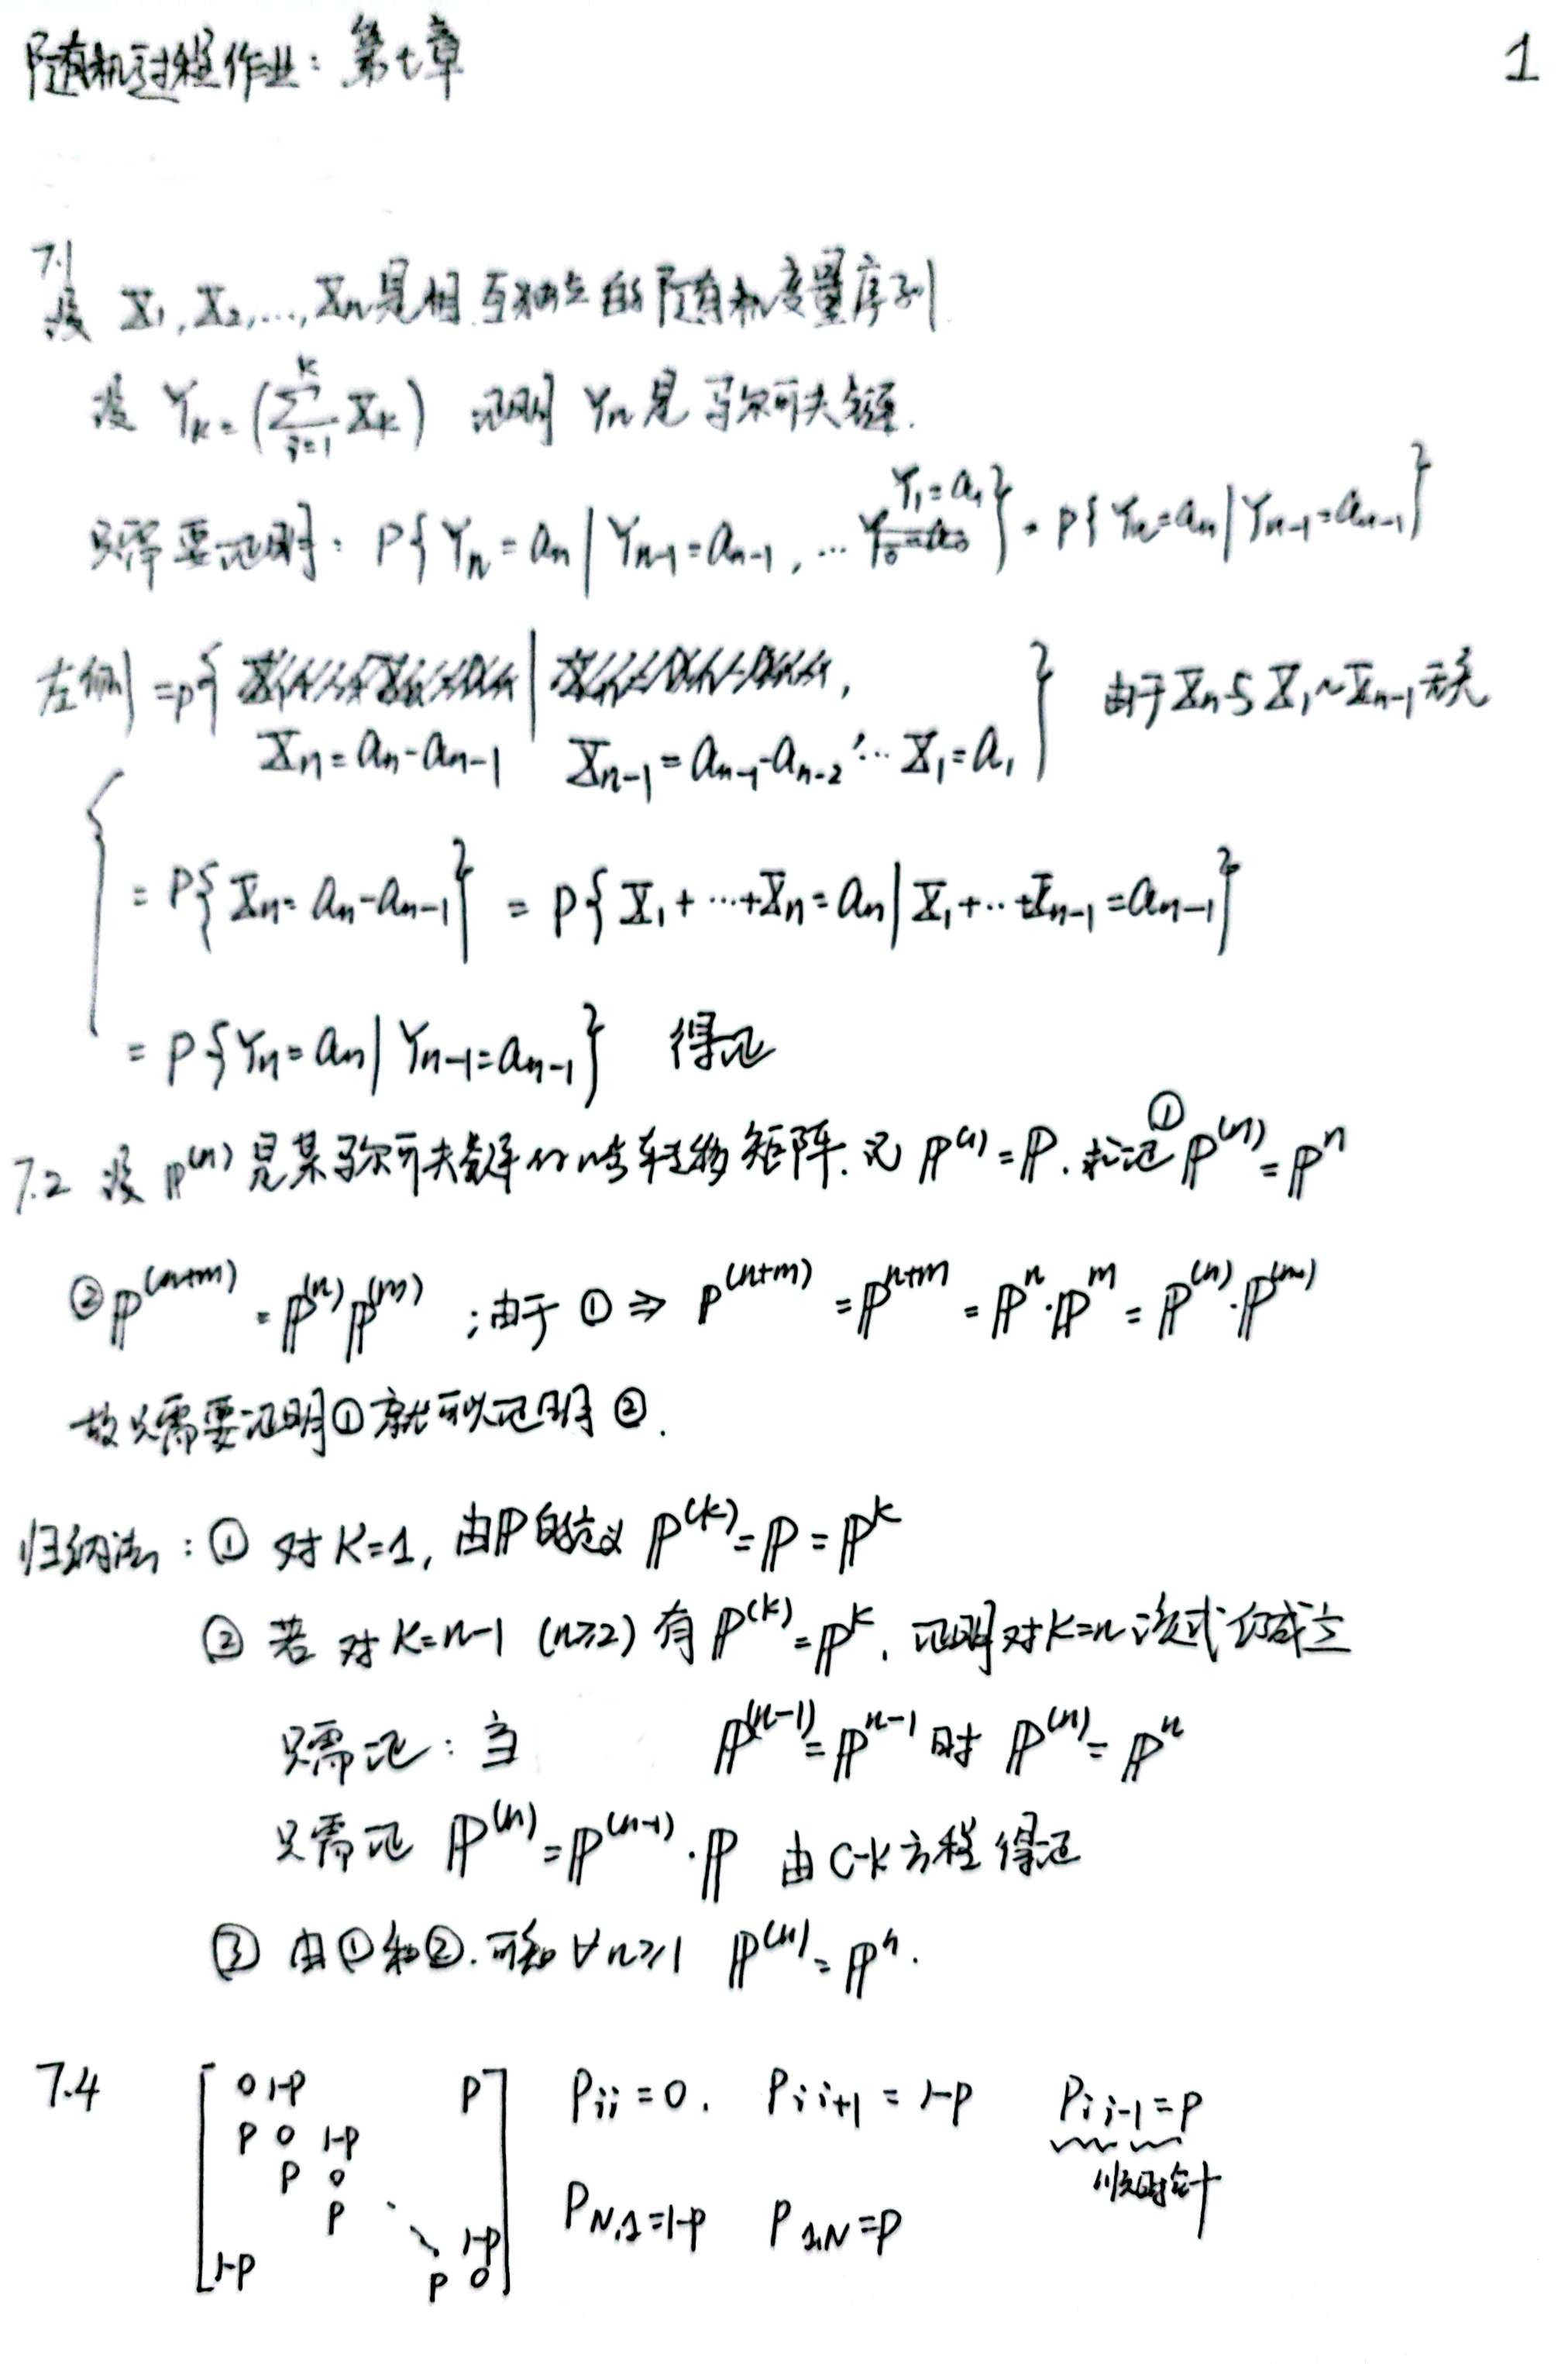 随机过程作业：第七章
1
7.1
设 X₁, X₂, ..., Xn是相互独立的随机变量序列
设 Yₖ = (∑_{i=1}^{k} Xₖ) 证明 Yn是马尔可夫链.
只需要证明： P{Yn = an | Yn-1 = an-1, ... Y₁ = a₁} = P{Yn = an | Yn-1 = an-1}
左侧 = P{Xn = an - an-1 | Xn-1 = an-1 - an-2, ... X₁ = a₁} 由于Xn与X₁~Xn-1无关
= P{Xn = an - an-1} = P{X₁ + ... + Xn = an | X₁ + ... + Xn-1 = an-1}
= P{Yn = an | Yn-1 = an-1} 得证
7.2 设 ℙ⁽ⁿ⁾ 是某马尔可夫链的n步转移矩阵. 记 ℙ⁽¹⁾ = ℙ. 求证 ① ℙ⁽ⁿ⁾ = ℙⁿ
② ℙ⁽ⁿ⁺ᵐ⁾ = ℙ⁽ⁿ⁾ℙ⁽ᵐ⁾ ；由于 ① ⇒ ℙ⁽ⁿ⁺ᵐ⁾ = ℙⁿ⁺ᵐ = ℙⁿ·ℙᵐ = ℙ⁽ⁿ⁾·ℙ⁽ᵐ⁾
故只需要证明①就可以证明②.
归纳法：① 对 K=1, 由ℙ的定义 ℙ⁽ᵏ⁾ = ℙ = ℙᵏ
② 若 对 K=n-1 (n≥2) 有 ℙ⁽ᵏ⁾ = ℙᵏ, 证明对K=n该式仍成立
只需证：当 ℙ⁽ⁿ⁻¹⁾ = ℙⁿ⁻¹ 时 ℙ⁽ⁿ⁾ = ℙⁿ
只需证 ℙ⁽ⁿ⁾ = ℙ⁽ⁿ⁻¹⁾·ℙ 由C-K方程得证
③ 由①和②. 可知 ∀n≥1 ℙ⁽ⁿ⁾ = ℙⁿ.
7.4
0 1-P P
P 0 1-P
P 0
P ⋱
1-P
1-P
P 0
Pii = 0. Pi i+1 = 1-P Pi i-1 = P
顺时针
P_{N,1} = 1-P P_{1,N} = P